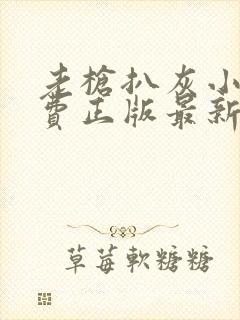 走槍扒灰小
費正版最新
草莓軟糖糖